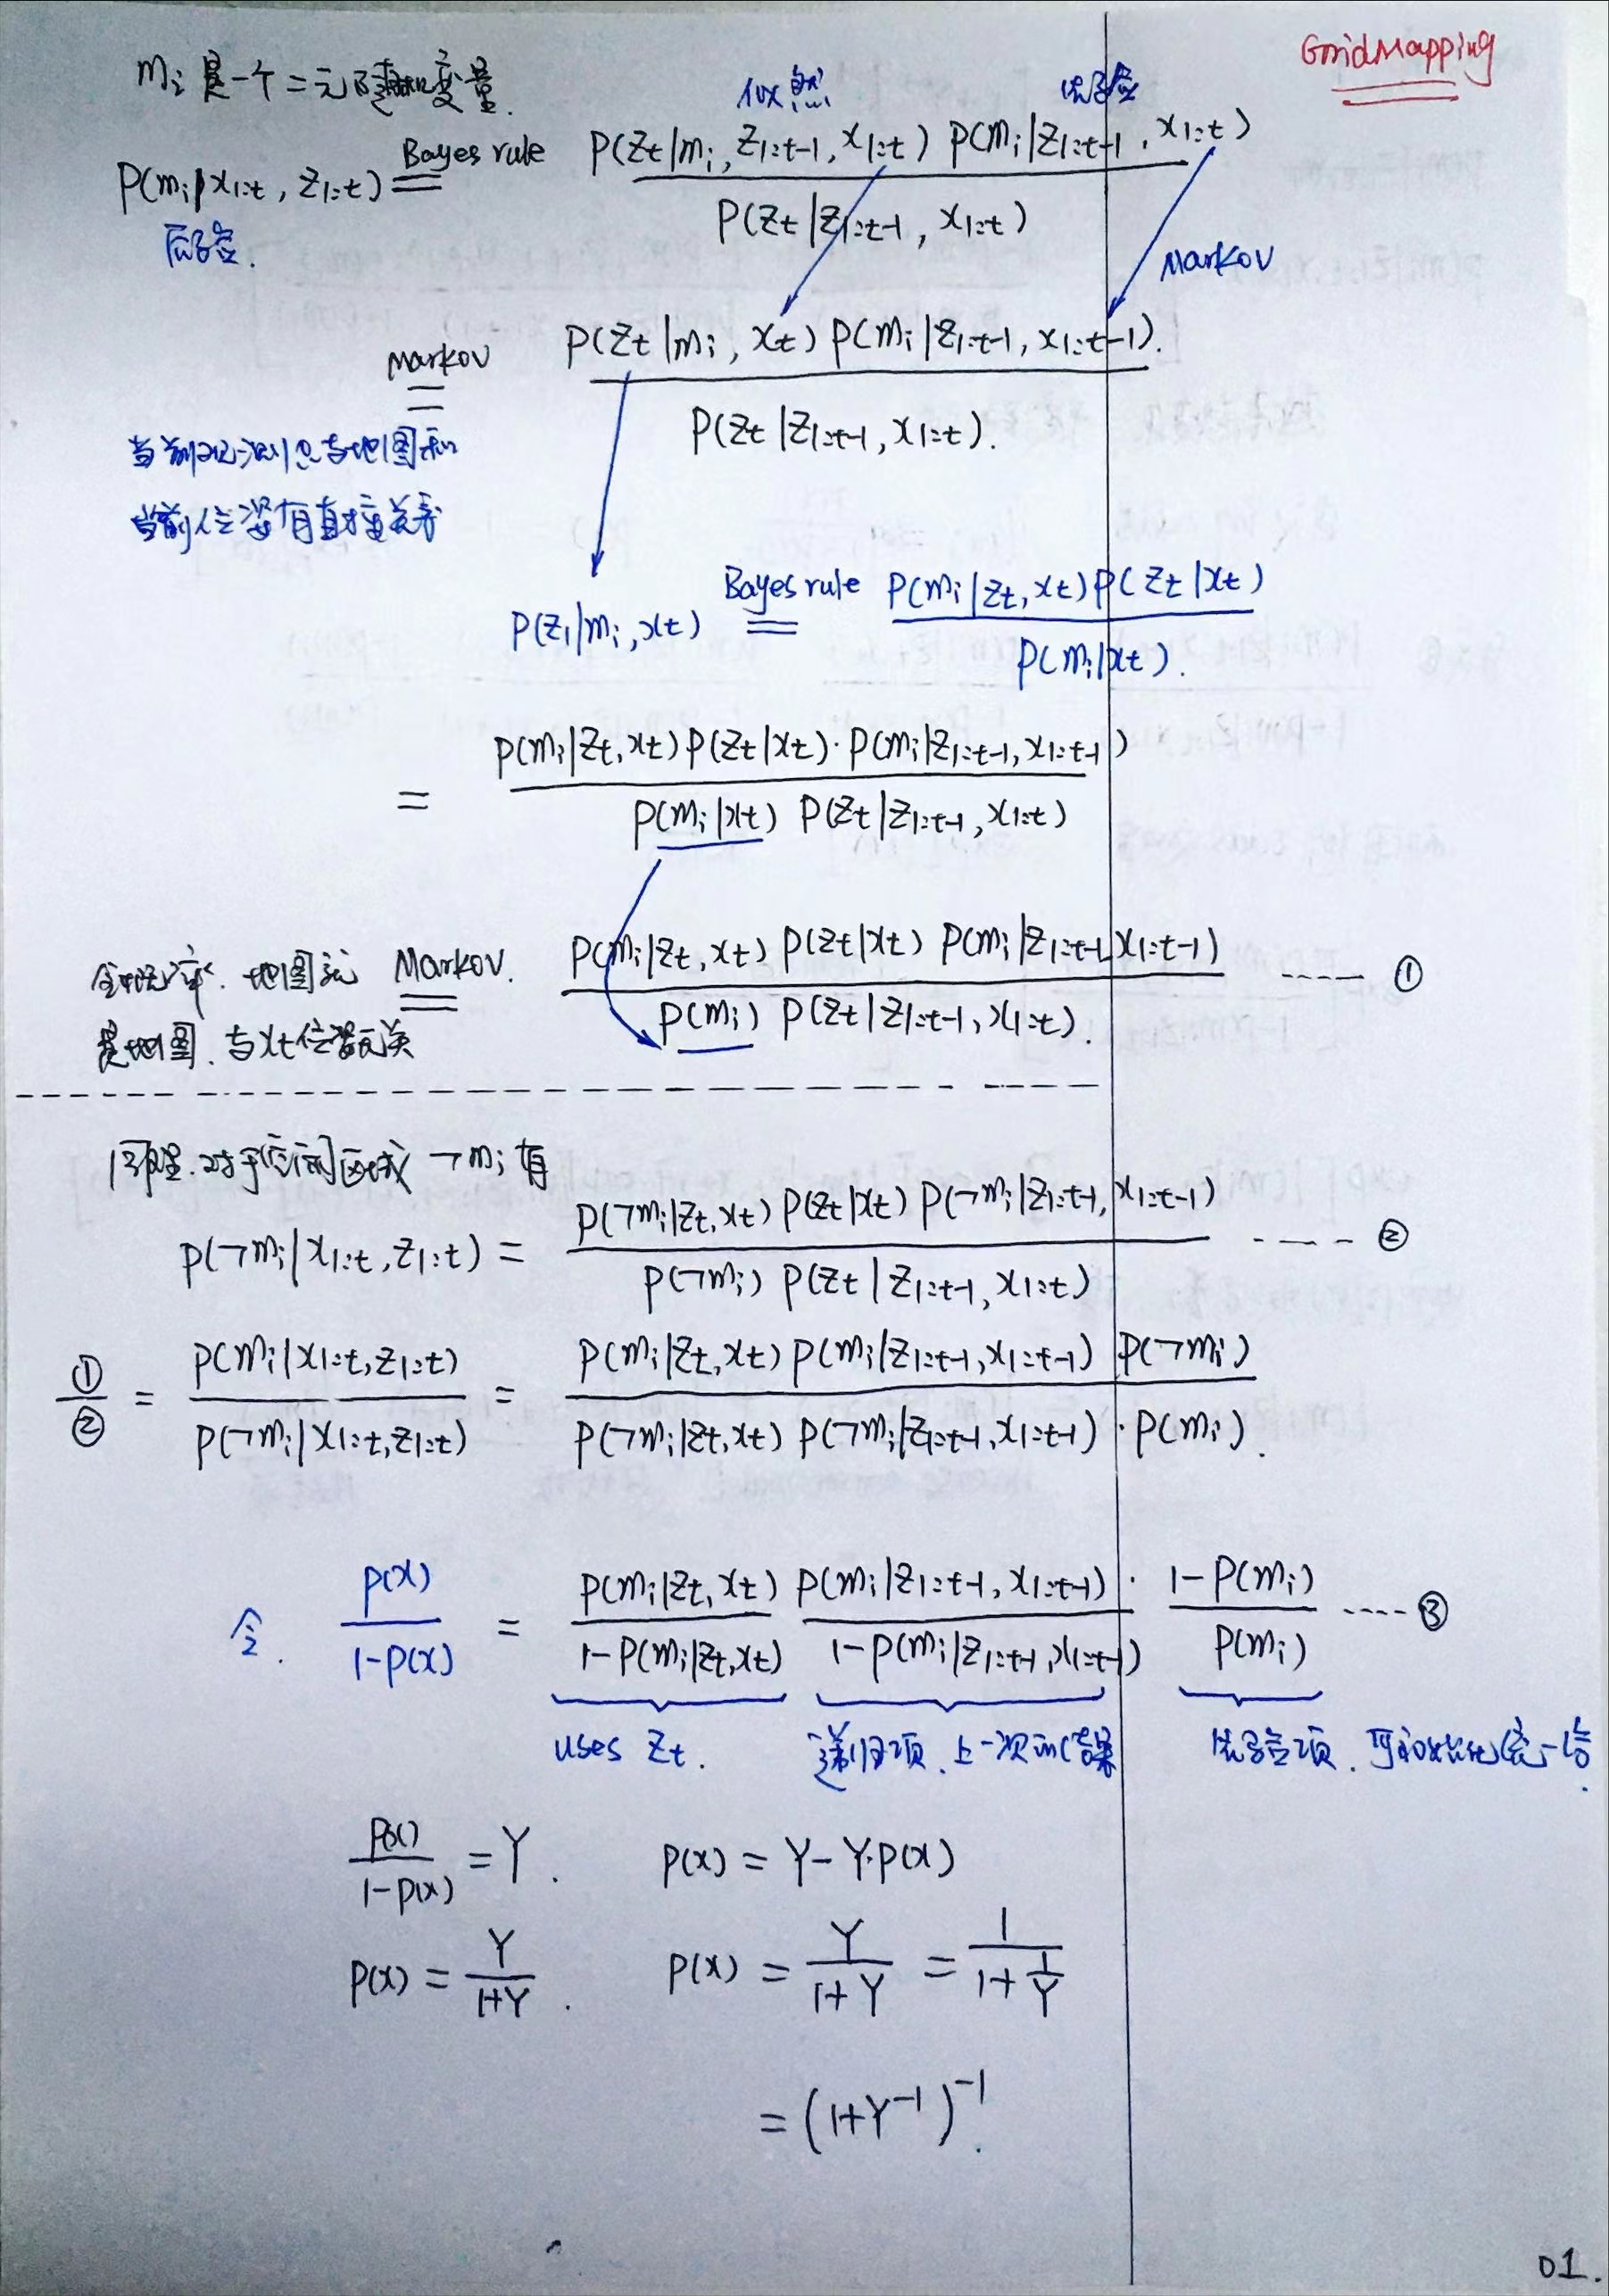 GridMapping
mi 是一个二元随机变量.
似然 先验
P(mi|x1:t, z1:t) Bayes rule = P(zt|mi, z1:t-1, x1:t) P(mi|z1:t-1, x1:t) / P(zt|z1:t-1, x1:t)
后验.
Markov
Markov = P(zt|mi, xt) P(mi|z1:t-1, x1:t-1). / P(zt|z1:t-1, x1:t).
当前观测只与地图和
当前位置有直接关系
P(z1|mi, xt) Bayes rule = P(mi|zt, xt) P(zt|xt) / P(mi|xt).
= P(mi|zt, xt) P(zt|xt)·P(mi|z1:t-1, x1:t-1) / P(mi|xt) P(zt|z1:t-1, x1:t)
概率. 地图就 Markov. = P(mi|zt, xt) P(zt|xt) P(mi|z1:t-1, x1:t-1) / P(mi) P(zt|z1:t-1, x1:t). ---- ①
是地图. 与xt位置无关
同理. 对于空闲区域 ¬mi 有
P(¬mi|x1:t, z1:t) = P(¬mi|zt, xt) P(zt|xt) P(¬mi|z1:t-1, x1:t-1) / P(¬mi) P(zt|z1:t-1, x1:t) ---- ②
①/② = P(mi|x1:t, z1:t) / P(¬mi|x1:t, z1:t) = P(mi|zt, xt) P(mi|z1:t-1, x1:t-1) P(¬mi) / P(¬mi|zt, xt) P(¬mi|z1:t-1, x1:t-1)·P(mi).
令. P(x) / 1-P(x) = P(mi|zt, xt) / 1-P(mi|zt, xt) P(mi|z1:t-1, x1:t-1) / 1-P(mi|z1:t-1, x1:t-1) · 1-P(mi) / P(mi) ---- ③
uses zt. 递归项. 上一次的结果 先验项. 可初始化
P(x) / 1-P(x) = Y. P(x) = Y-Y·P(x)
P(x) = Y / 1+Y. P(x) = Y / 1+Y = 1 / 1+1/Y
= (1+Y⁻¹)⁻¹.
01.